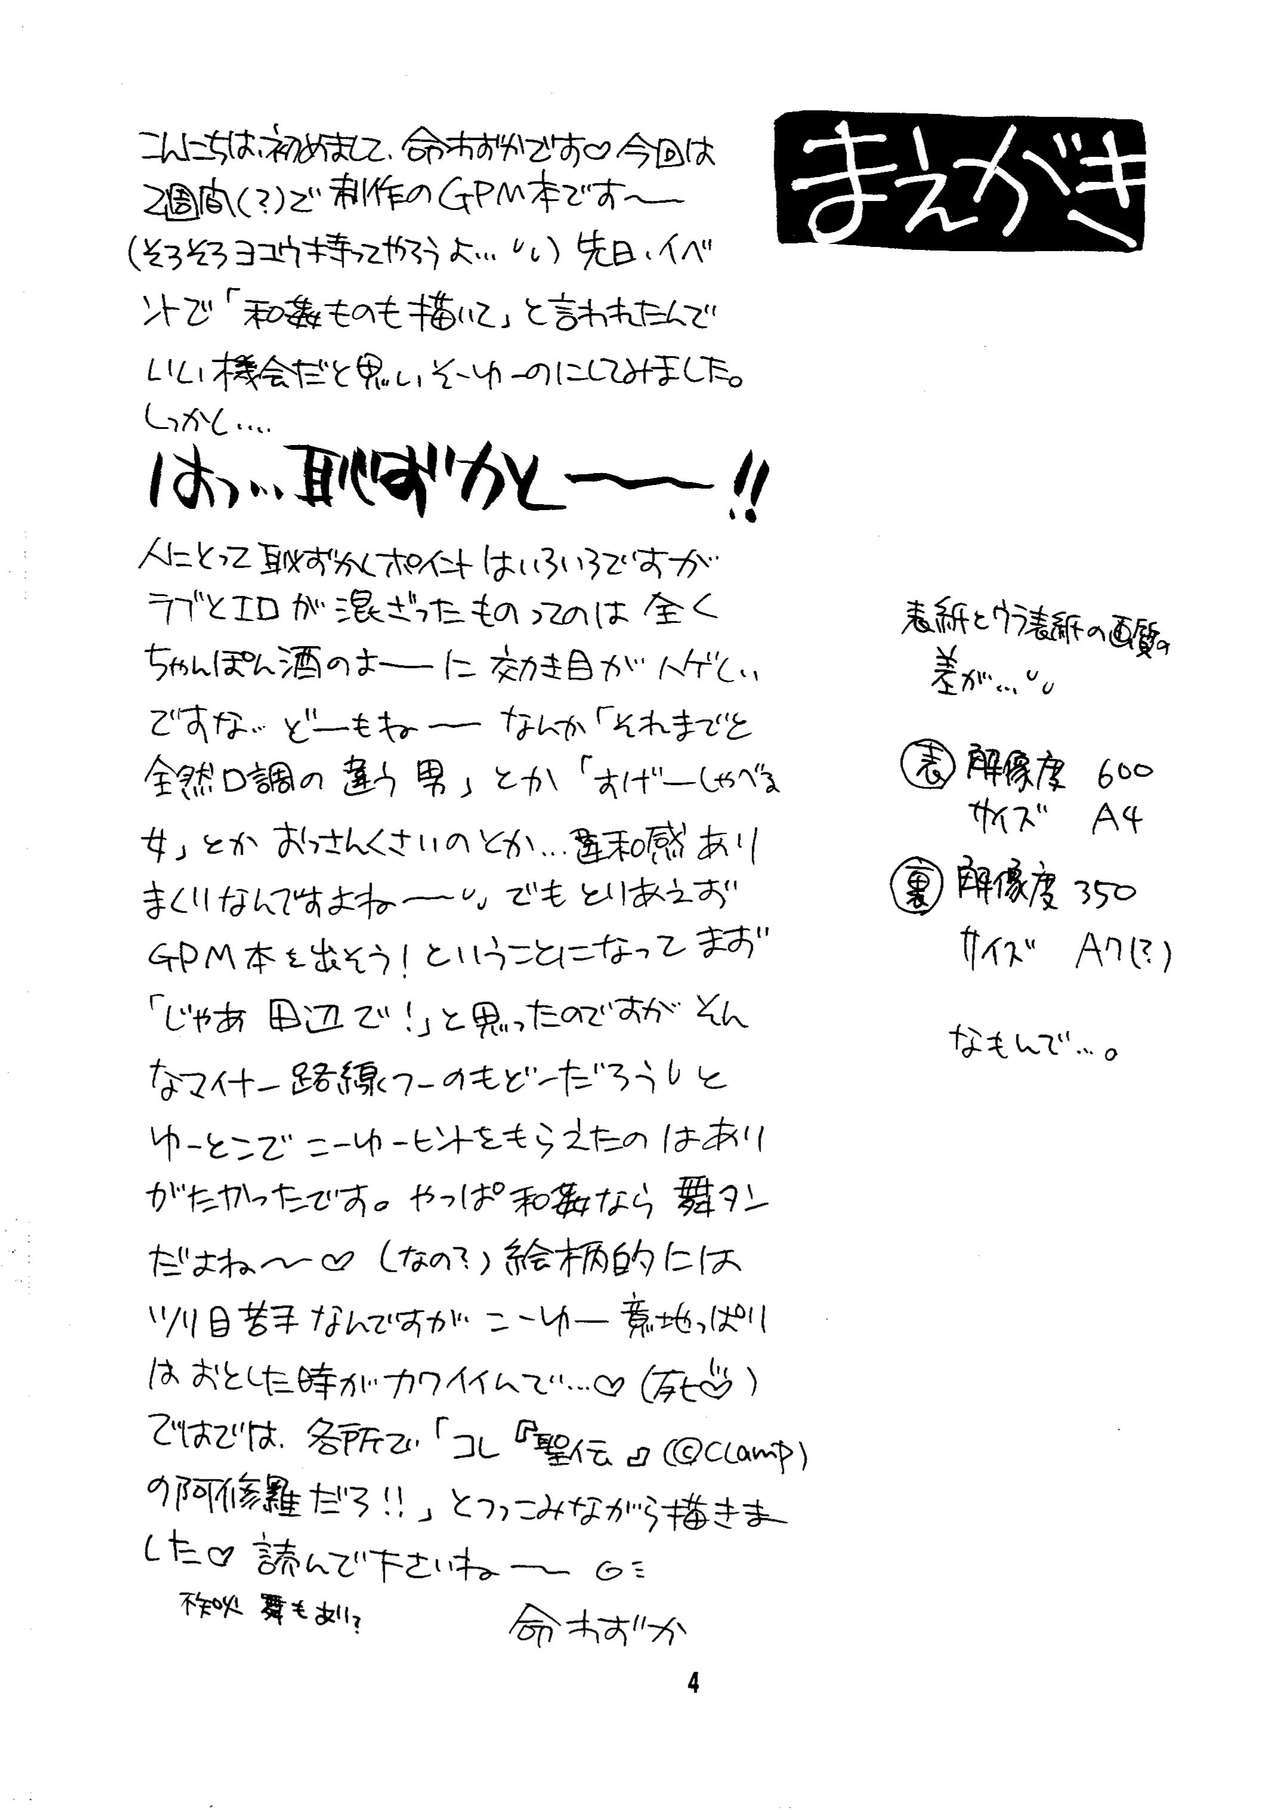 まえがき
こんにちは、初めまして、命わずかです♡今回は
2週間(?)で制作のGPM本です〜
(そろそろヨユウ持ってやろうよ…) 先日、イベ
ントで「和姦ものも描いて」と言われたんで
いい機会だと思いそーゆーのにしてみました。
しっかし‥‥
はっ…恥ずかと〜!!
人にとって恥ずかしポイントはいろいろですが
ラブとエロが混ざったものってのは全く
ちゃんぽん酒のよーに効き目がハゲしい
ですな… どーもね〜 なんか「それまでと
全然口調の違う男」とか「すげーしゃべる
女」とかおっさんくさいのとか…違和感あり
まくりなんですよね〜 でもとりあえず
GPM本を出そう!ということになってまず
「じゃあ田辺で!」と思ったのですがそん
なマイナー路線くつーのもどーだろうと
ゆーとこでこーゆーヒントをもらえたのはあり
がたかったです。やっぱ和姦なら舞タン
だよね〜♡(なの?)絵柄的には
ツリ目苦手なんですがこーゆー意地っぱり
はおとした時がカワイイんで…♡(死♡)
ではでは、各所で「コレ『聖伝』(©CLAMP)
の阿修羅だろ!!」とつっこみながら描きま
した♡読んで下さいね〜
舞もあり?
命わずか
表紙とウラ表紙の画質の
差が…
表 解像度 600
サイズ A4
裏 解像度 350
サイズ A7(?)
なもんで…。
4